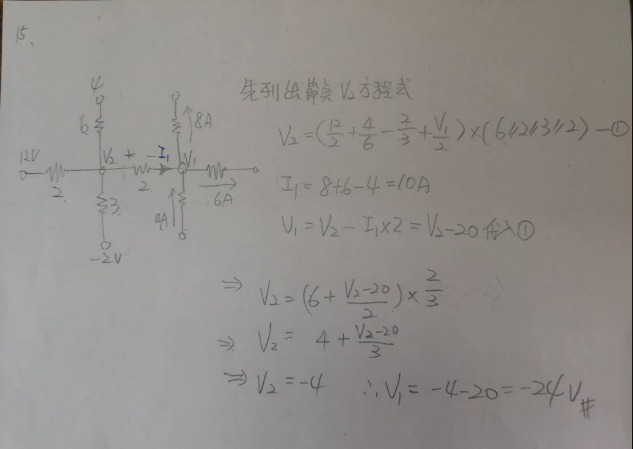 15、
4
6
8A
12V
V₂ + - I₁
V₁
2
2
6A
3
4A
-2V
先列出節點 V₂ 方程式
V₂ = (12/2 + 4/6 - 2/3 + V₁/2) × (6//2//3//2) — ①
I₁ = 8+6-4 = 10A
V₁ = V₂ - I₁×2 = V₂-20 代入①
⇒ V₂ = (6 + V₂-20/2) × 2/3
⇒ V₂ = 4 + V₂-20/3
⇒ V₂ = -4 ∴ V₁ = -4-20 = -24V #